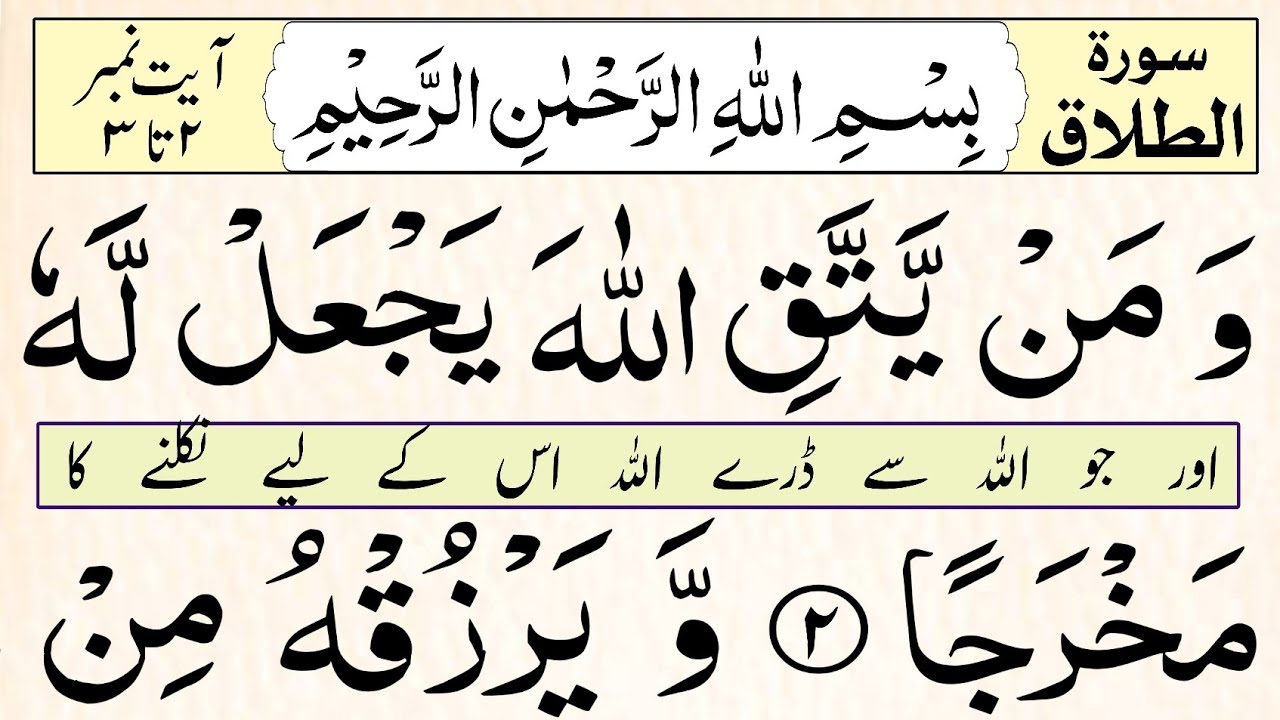 سورة
الطلاق
بِسْمِ اللّٰهِ الرَّحْمٰنِ الرَّحِيْمِ
آیت نمبر
۲ تا ۳
وَ مَنْ يَّتَّقِ اللّٰهَ يَجْعَلْ لَّهٗ
اور جو اللہ سے ڈرے اللہ اس کے لیے نکلنے کا
مَخْرَجًا ۲ وَّ يَرْزُقْهُ مِنْ